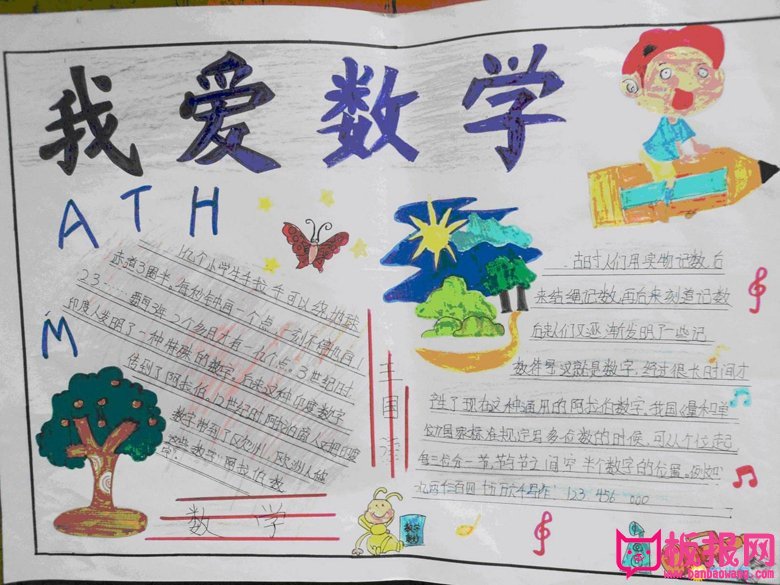 我爱数学
M A T H
1亿个小学生手拉手可以绕地球
赤道3圈半。每秒钟画一个点,一刻不停地画1
2.3 3年2个多月才有一亿个点。3世纪时
印度人发明了一种特殊的数字,后来这种印度数字
传到了阿拉伯,12世纪时阿拉伯商人又把印度
数字带到了欧洲,欧洲人称
这些数字“阿拉伯数
字”。
数学
王国
古时人们用实物记数,后
来结绳记数,再后来刻道记数
后来人们又逐渐发明了一些记
数符号,这就是数字,经过很长时间才
产生了现在这种通用的阿拉伯数字,我国《量和单
位》国家标准规定写多位数的时候,可以个位起
每三位分一节,节与节之间空半个数字的位置。例如
123 456 000
数学
板报网
www.banbaowang.com